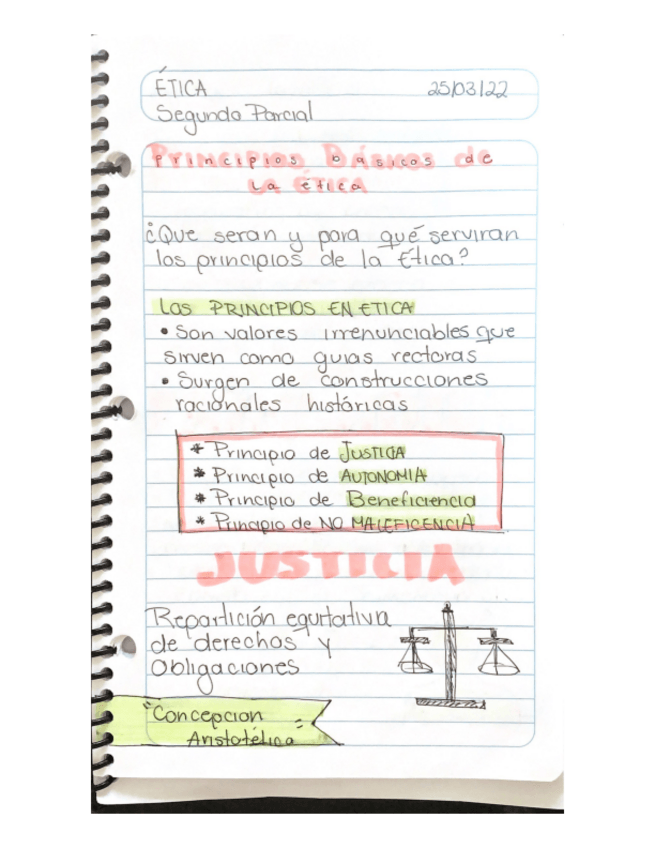 ÉTICA 25/03/22
Segundo Parcial
Principios Básicos de
La ética
¿Que seran y para qué serviran
los principios de la Ética?
Los PRINCIPIOS EN ETICA
• Son valores irrenunciables que
sirven como guias rectoras
• Surgen de construcciones
racionales históricas
* Principio de JUSTICIA
* Principio de AUTONOMIA
* Principio de Beneficiencia
* Principio de NO MALEFICENCIA
JUSTICIA
Repartición equitativa
de derechos y
Obligaciones
"Concepcion
Aristotélica"